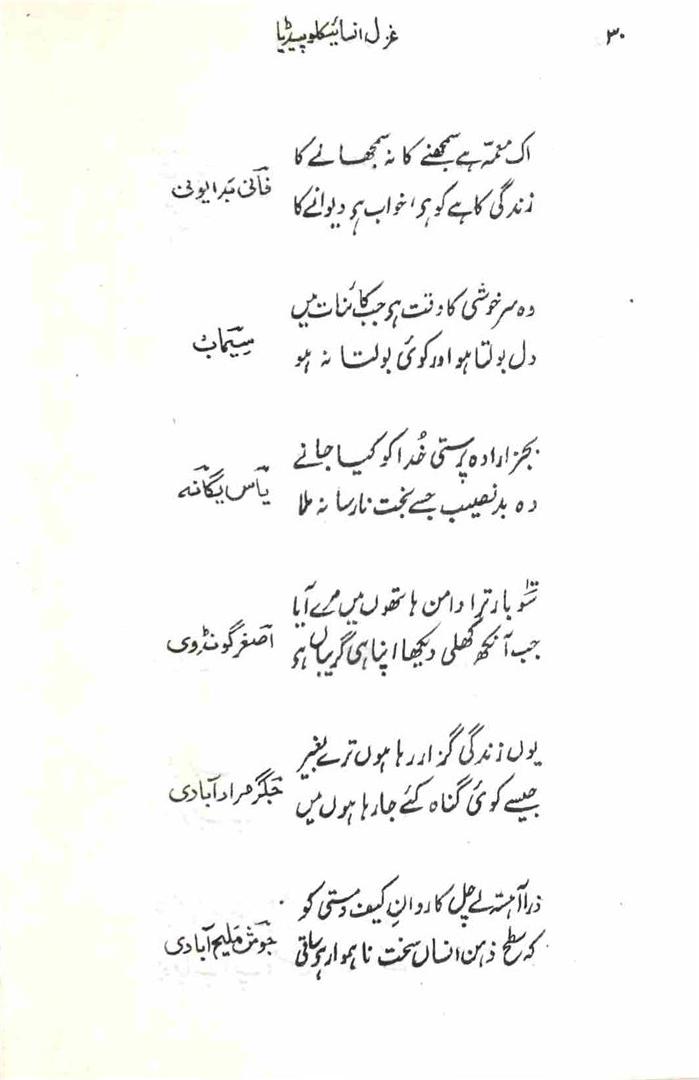 ۳۰
غزل انسائیکلوپیڈیا
اک معمّہ ہے سمجھنے کا نہ سمجھانے کا
زندگی کاہے کو ہے اخواب ہے دیوانے کا
فانی بدایونی
وہ سرخوشی کا وقت ہو جب کائنات میں
دل بولتا ہو اور کوئی بولتا نہ ہو
سیماب
بجز ارادہ پرستی خُدا کو کیا جانے
وہ بدنصیب جسے بخت نارسا نہ ملا
یاس یگانہ
سَو بار ترا دامن ہاتھوں میں مرے آیا
جب آنکھ کھلی دیکھا اپنا ہی گریباں ہے
اصغر گونڈوی
یوں زندگی گزار رہا ہوں ترے بغیر
جیسے کوئی گناہ کئے جا رہا ہوں میں
جگر مراد آبادی
ذرا آہستہ لے چل کاروانِ کیف و مستی کو
کہ سطح ذہن انساں سخت ناہموار ہے ساقی
جوش ملیح آبادی